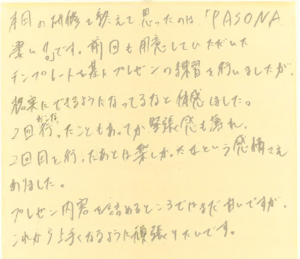 本日の研修を終えて思ったのは、「PASONA
凄い!!」です。前回も用意していただいた
テンプレートを基にプレゼンの練習を行いましたが、
確実にできるようになってるなと体感しました。
2回行ったこともあってか緊張感も薄れ、
2回目を行ったあとは楽しかったなという感情さえ
ありました。
プレゼン内容を詰めるところでまだまだ甘いですが、
これから上手くなるように頑張りたいです。